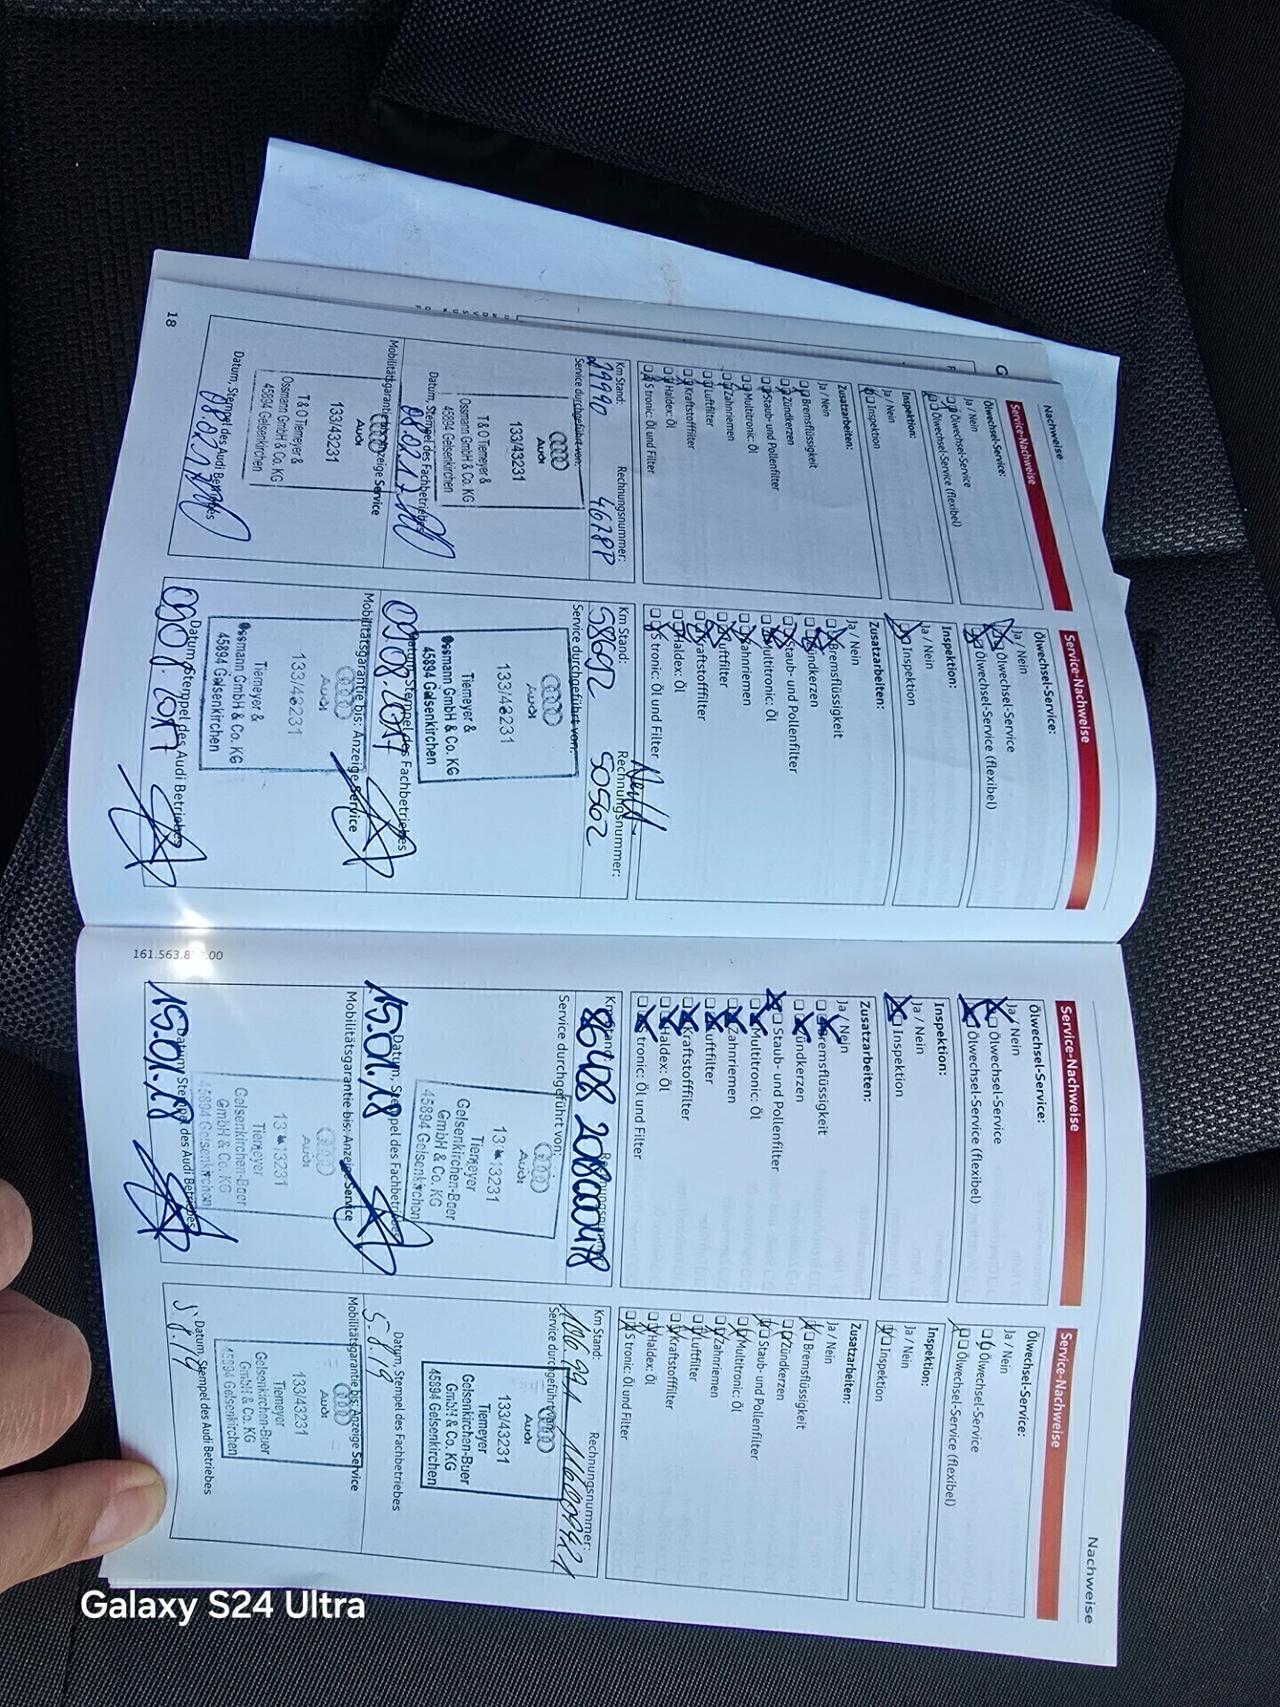 Nachweise
Service-Nachweise
Ölwechsel-Service:
Ja / Nein
Ölwechsel-Service
Ölwechsel-Service (flexibel)
Inspektion:
Ja / Nein
Inspektion
Zusatzarbeiten:
Ja / Nein
Bremsflüssigkeit
Zündkerzen
Staub- und Pollenfilter
Multitronic: Öl
Zahnriemen
Luftfilter
Kraftstofffilter
Haldex: Öl
S tronic: Öl und Filter
Km Stand: Rechnungsnummer:
Service durchgeführt von:
Audi
133/43231
T & O Tiemeyer &
Ossmann GmbH & Co. KG
45894 Gelsenkirchen
Datum, Stempel des Fachbetriebes
Mobilitätsgarantie bis: Anzeige Service
Audi
133/43231
T & O Tiemeyer &
Ossmann GmbH & Co. KG
45894 Gelsenkirchen
Datum, Stempel des Audi Betriebes
18
Service-Nachweise
Ölwechsel-Service:
Ja / Nein
Ölwechsel-Service
Ölwechsel-Service (flexibel)
Inspektion:
Ja / Nein
Inspektion
Zusatzarbeiten:
Ja / Nein
Bremsflüssigkeit
Zündkerzen
Staub- und Pollenfilter
Multitronic: Öl
Zahnriemen
Luftfilter
Kraftstofffilter
Haldex: Öl
S tronic: Öl und Filter
Km Stand: Rechnungsnummer:
58692 50562
Service durchgeführt von:
Audi
133/43231
Tiemeyer &
Ossmann GmbH & Co. KG
45894 Gelsenkirchen
Datum, Stempel des Fachbetriebes
09.08.2017
Mobilitätsgarantie bis: Anzeige Service
Audi
133/43231
Tiemeyer &
Ossmann GmbH & Co. KG
45894 Gelsenkirchen
Datum, Stempel des Audi Betriebes
09.08.2017
Service-Nachweise
Ölwechsel-Service:
Ja / Nein
Ölwechsel-Service
Ölwechsel-Service (flexibel)
Inspektion:
Ja / Nein
Inspektion
Zusatzarbeiten:
Ja / Nein
Bremsflüssigkeit
Zündkerzen
Staub- und Pollenfilter
Multitronic: Öl
Zahnriemen
Luftfilter
Kraftstofffilter
Haldex: Öl
S tronic: Öl und Filter
Km Stand: Rechnungsnummer:
Service durchgeführt von:
Audi
Tiemeyer
Gelsenkirchen-Buer
GmbH & Co. KG
45894 Gelsenkirchen
Datum, Stempel des Fachbetriebes
15.01.18
Mobilitätsgarantie bis: Anzeige Service
Audi
Tiemeyer
Gelsenkirchen-Buer
GmbH & Co. KG
45894 Gelsenkirchen
Datum, Stempel des Audi Betriebes
15.01.18
Nachweise
Service-Nachweise
Ölwechsel-Service:
Ja / Nein
Ölwechsel-Service
Ölwechsel-Service (flexibel)
Inspektion:
Ja / Nein
Inspektion
Zusatzarbeiten:
Ja / Nein
Bremsflüssigkeit
Zündkerzen
Staub- und Pollenfilter
Multitronic: Öl
Zahnriemen
Luftfilter
Kraftstofffilter
Haldex: Öl
S tronic: Öl und Filter
Km Stand: Rechnungsnummer:
Service durchgeführt von:
Audi
133/43231
Tiemeyer
Gelsenkirchen-Buer
GmbH & Co. KG
45894 Gelsenkirchen
Datum, Stempel des Fachbetriebes
5.8.19
Mobilitätsgarantie bis: Anzeige Service
Audi
133/43231
Tiemeyer
Gelsenkirchen-Buer
GmbH & Co. KG
45894 Gelsenkirchen
Datum, Stempel des Audi Betriebes
5.8.19
Galaxy S24 Ultra